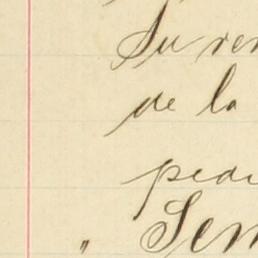 Su ren
de la
pedi
" Sem